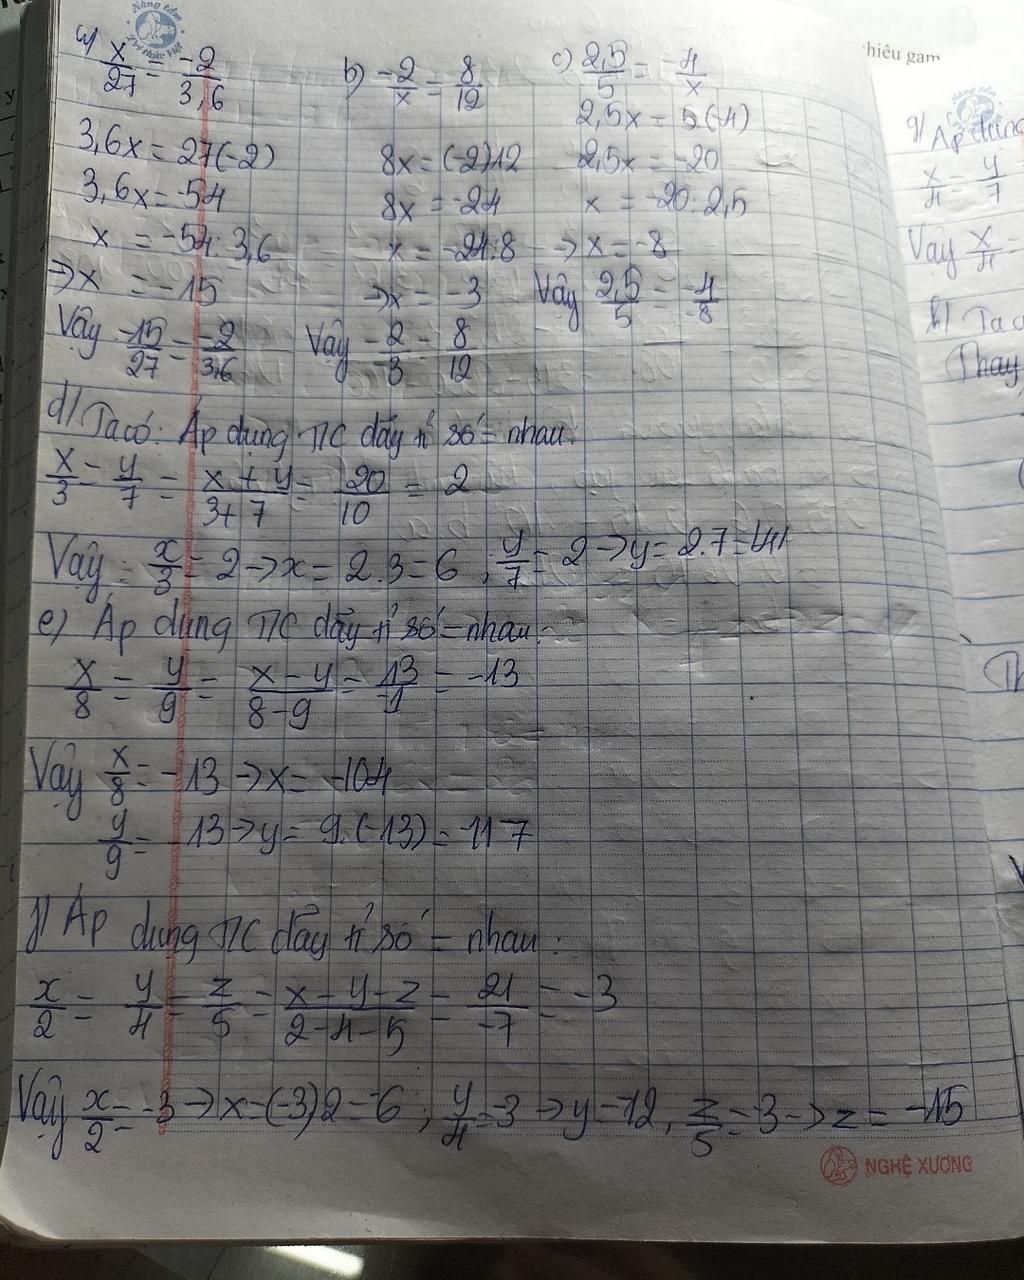 Nâng tầm
Trí thức Việt
a) x/27 = -2/3,6
3,6x = 27(-2)
3,6x = -54
x = -54 : 3,6
→ x = -15
Vậy -15/27 = -2/3,6
b) -2/x = 8/12
8x = (-2)12
8x = -24
x = -24:8
→ x = -3
Vậy -2/-3 = 8/12
c) 2,5/5 = -4/x
2,5x = 5.(-4)
2,5x = -20
x = -20 : 2,5
→ x = -8
Vậy 2,5/5 = -4/-8
d) Ta có: Áp dụng T/C dãy tỉ số = nhau:
x/3 = y/7 = x+y/3+7 = 20/10 = 2
Vậy: x/3 = 2 → x = 2.3 = 6 ; y/7 = 2 → y = 2.7 = 14
e) Áp dụng T/C dãy tỉ số = nhau:
x/8 = y/9 = x-y/8-9 = 13/-1 = -13
Vậy x/8 = -13 → x = -104
y/9 = -13 → y = 9.(-13) = -117
f) Áp dụng T/C dãy tỉ số = nhau:
x/2 = y/4 = z/5 = x-y-z/2-4-5 = 21/-7 = -3
Vậy x/2 = -3 → x = (-3)2 = -6 ; y/4 = -3 → y = -12, z/5 = -3 → z = -15
NGHỆ XƯƠNG
nhiêu gam
g) Áp dụng
x/4 = y/7
Vậy x/4 =
h) Ta có
Thay